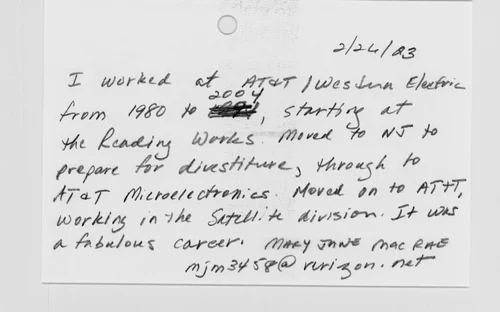 2/24/23
I worked at AT&T / Western Electric
from 1980 to 2004, starting at
the Reading Works. Moved to NJ to
prepare for divestiture, through to
AT&T Microelectronics. Moved on to AT&T,
working in the Satellite division. It was
a fabulous career. MARY JANE MAC RAE
mjm3458@verizon.net